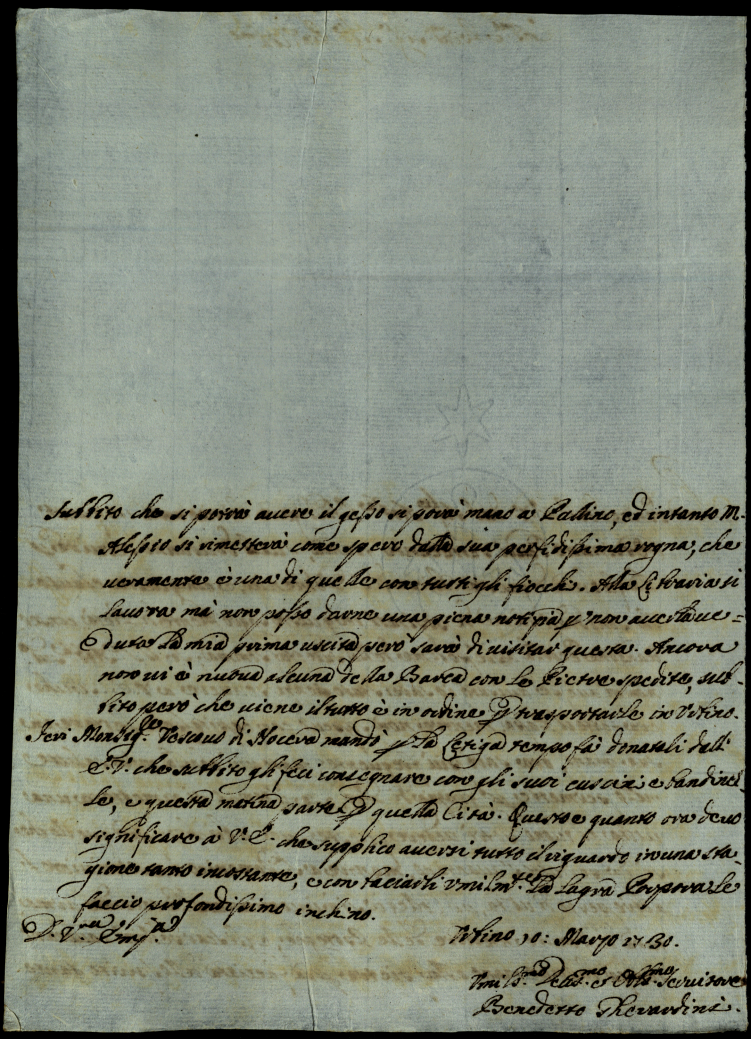 Subbito che si potrà avere il gesso si porrà mano a Pallino, ed intanto M.
Alessio si rimetterà come spero dalla sua perfidissima rogna, che
veramente è una di quelle con tutti gli fiocchi. Alla Libraria si
lavora mà non posso darne una piena notizia p. non averla ve=
duta. La mia prima uscita però sarà di visitar questa. Ancora
non vi è nuova alcuna della Barca con le Pietre spedite, sub=
bito però che viene il tutto è in ordine p. trasportarle in Urbino.
Jeri Monsig.re Vescovo di Nocera mandò p. la Letiga tempo fà donatali dall'
E.V. che subbito gli feci consegnare con gli suoi cuscini e bandinel=
le, e questa matina parte p. quella Città. Questo e quanto ora devo
significare à V.E. che supplico aversi tutto il riguardo in una sta=
gione tanto incostante, e con baciarli umilm.te la Sagra Porpora le
faccio profondissimo inchino.
D. V.ra Em.za
Urbino 10: Marzo 1730.
Umil.mo Devot.mo et Obb.mo Servitore
Benedetto Gherardini.